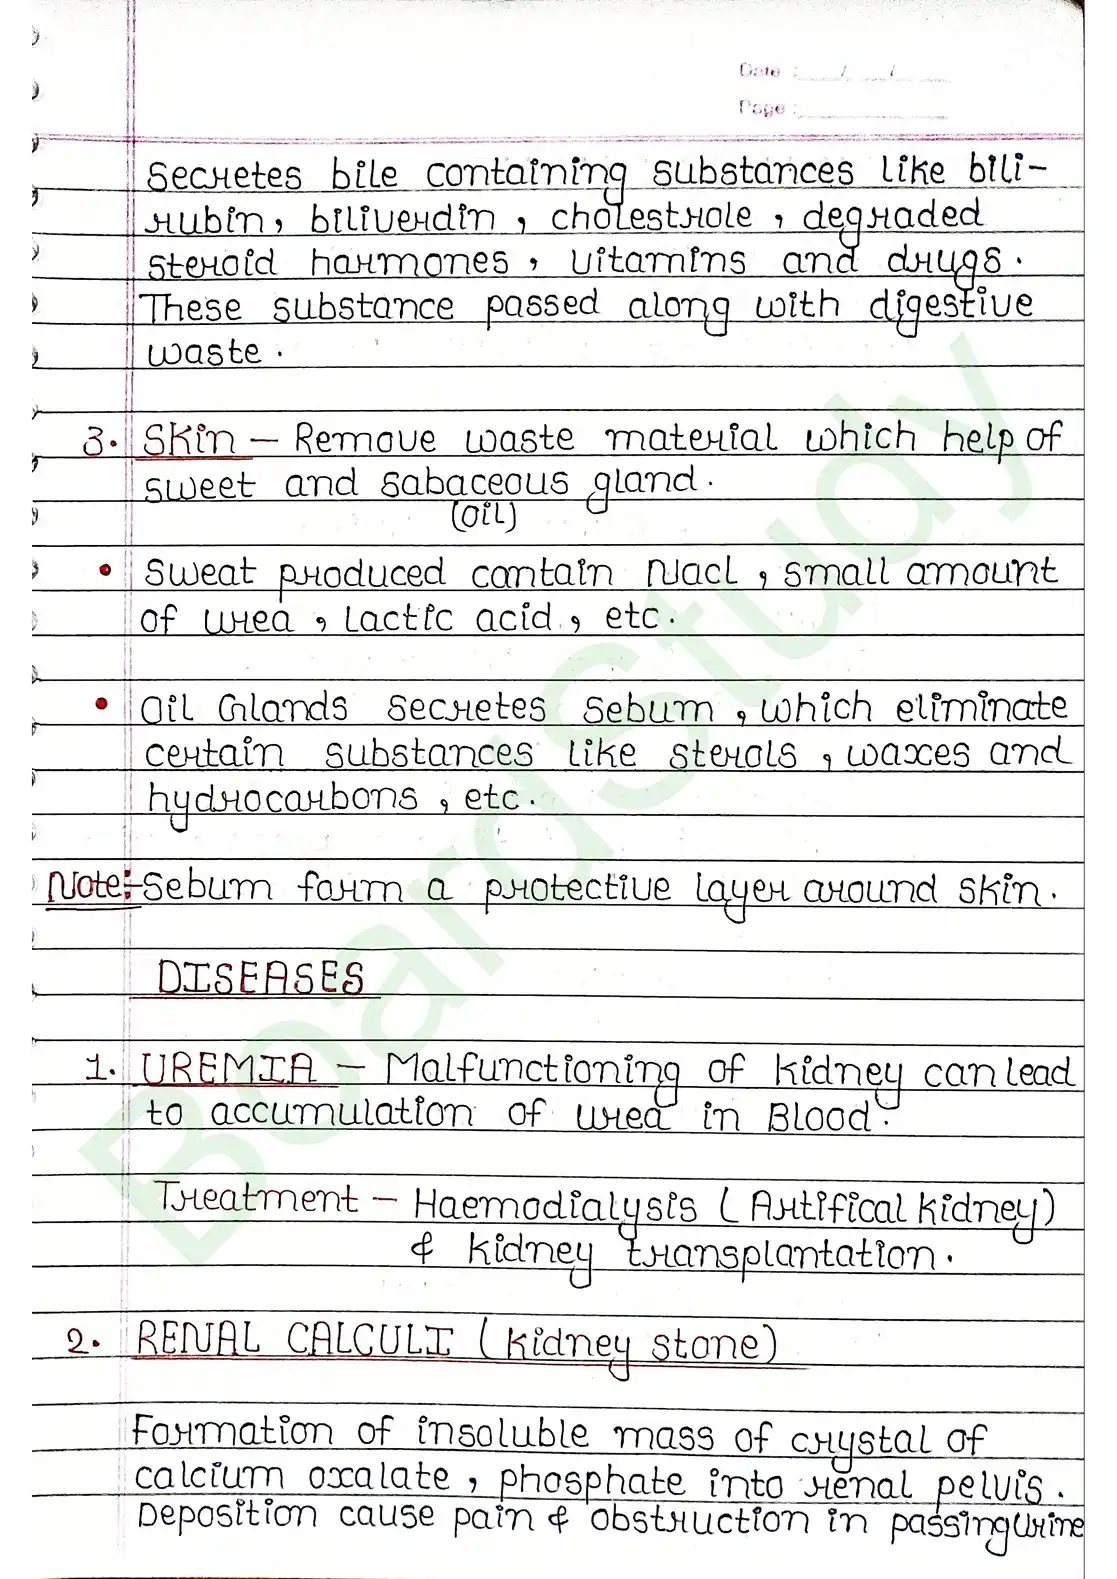 Date : __/__/__
Page :
Secretes bile containing substances like bili-
rubin, biliverdin, cholestrole, degraded
steroid harmones, vitamins and drugs.
These substance passed along with digestive
waste.
3. Skin - Remove waste material which help of
sweet and sabaceous gland.
(oil)
• Sweat produced contain Nacl, small amount
of urea, Lactic acid, etc.
• Oil Glands secretes sebum, which eliminate
certain substances like sterols, waxes and
hydrocarbons, etc.
Note:- Sebum form a protective layer around skin.
DISEASES
1. UREMIA - Malfunctioning of kidney can lead
to accumulation of urea in Blood.
Treatment - Haemodialysis (Artifical kidney)
& kidney transplantation.
2. RENAL CALCULI (kidney stone)
Formation of insoluble mass of crystal of
calcium oxalate, phosphate into renal pelvis.
Deposition cause pain & obstruction in passing urine
BoardStudy